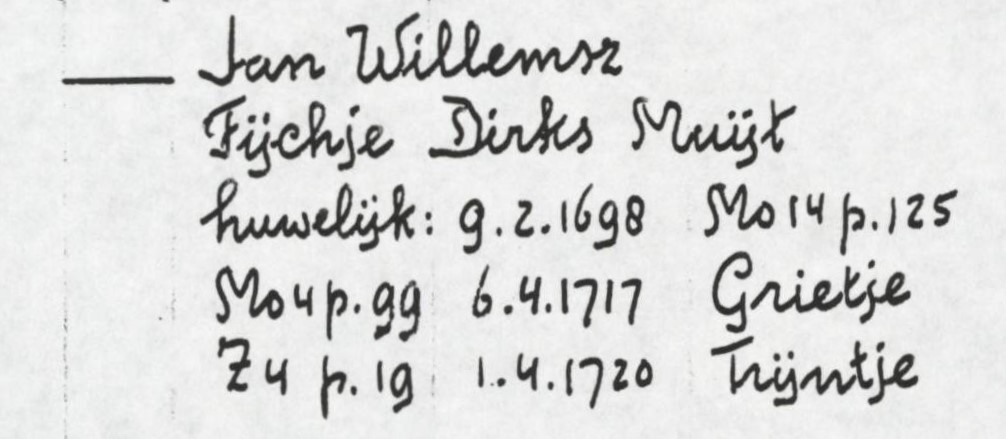 Jan Willemsz
Fijchje Dirks Muijt
huwelijk: 9.2.1698 Mo 14 p. 125
Mo 4 p. 99 6.4.1717 Grietje
Z 4 p. 19 1.4.1720 Trijntje